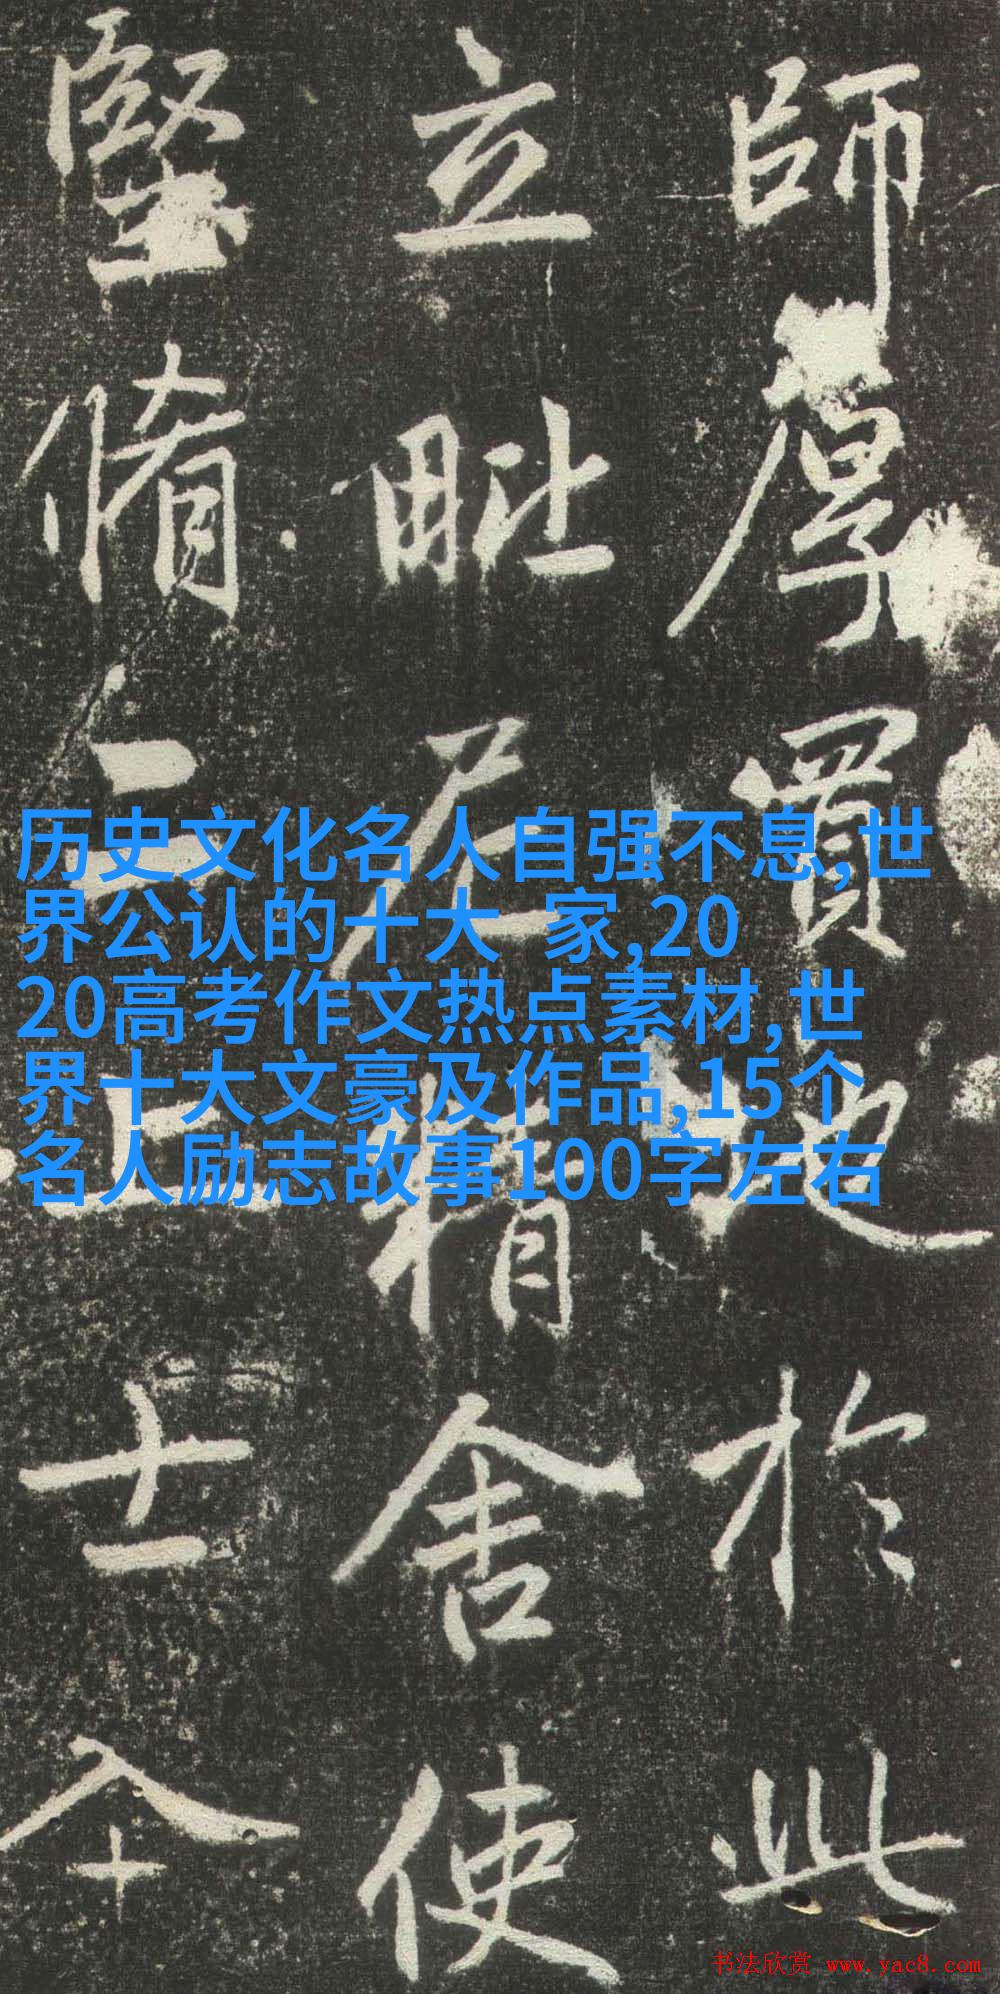 師厚買地於此
立毗尼精舍使
堅脩二上士
历史文化名人自强不息,世
界公认的十大 家,20
20高考作文热点素材,世
界十大文豪及作品,15个
名人励志故事100字左右
书法欣赏 www.yac8.com